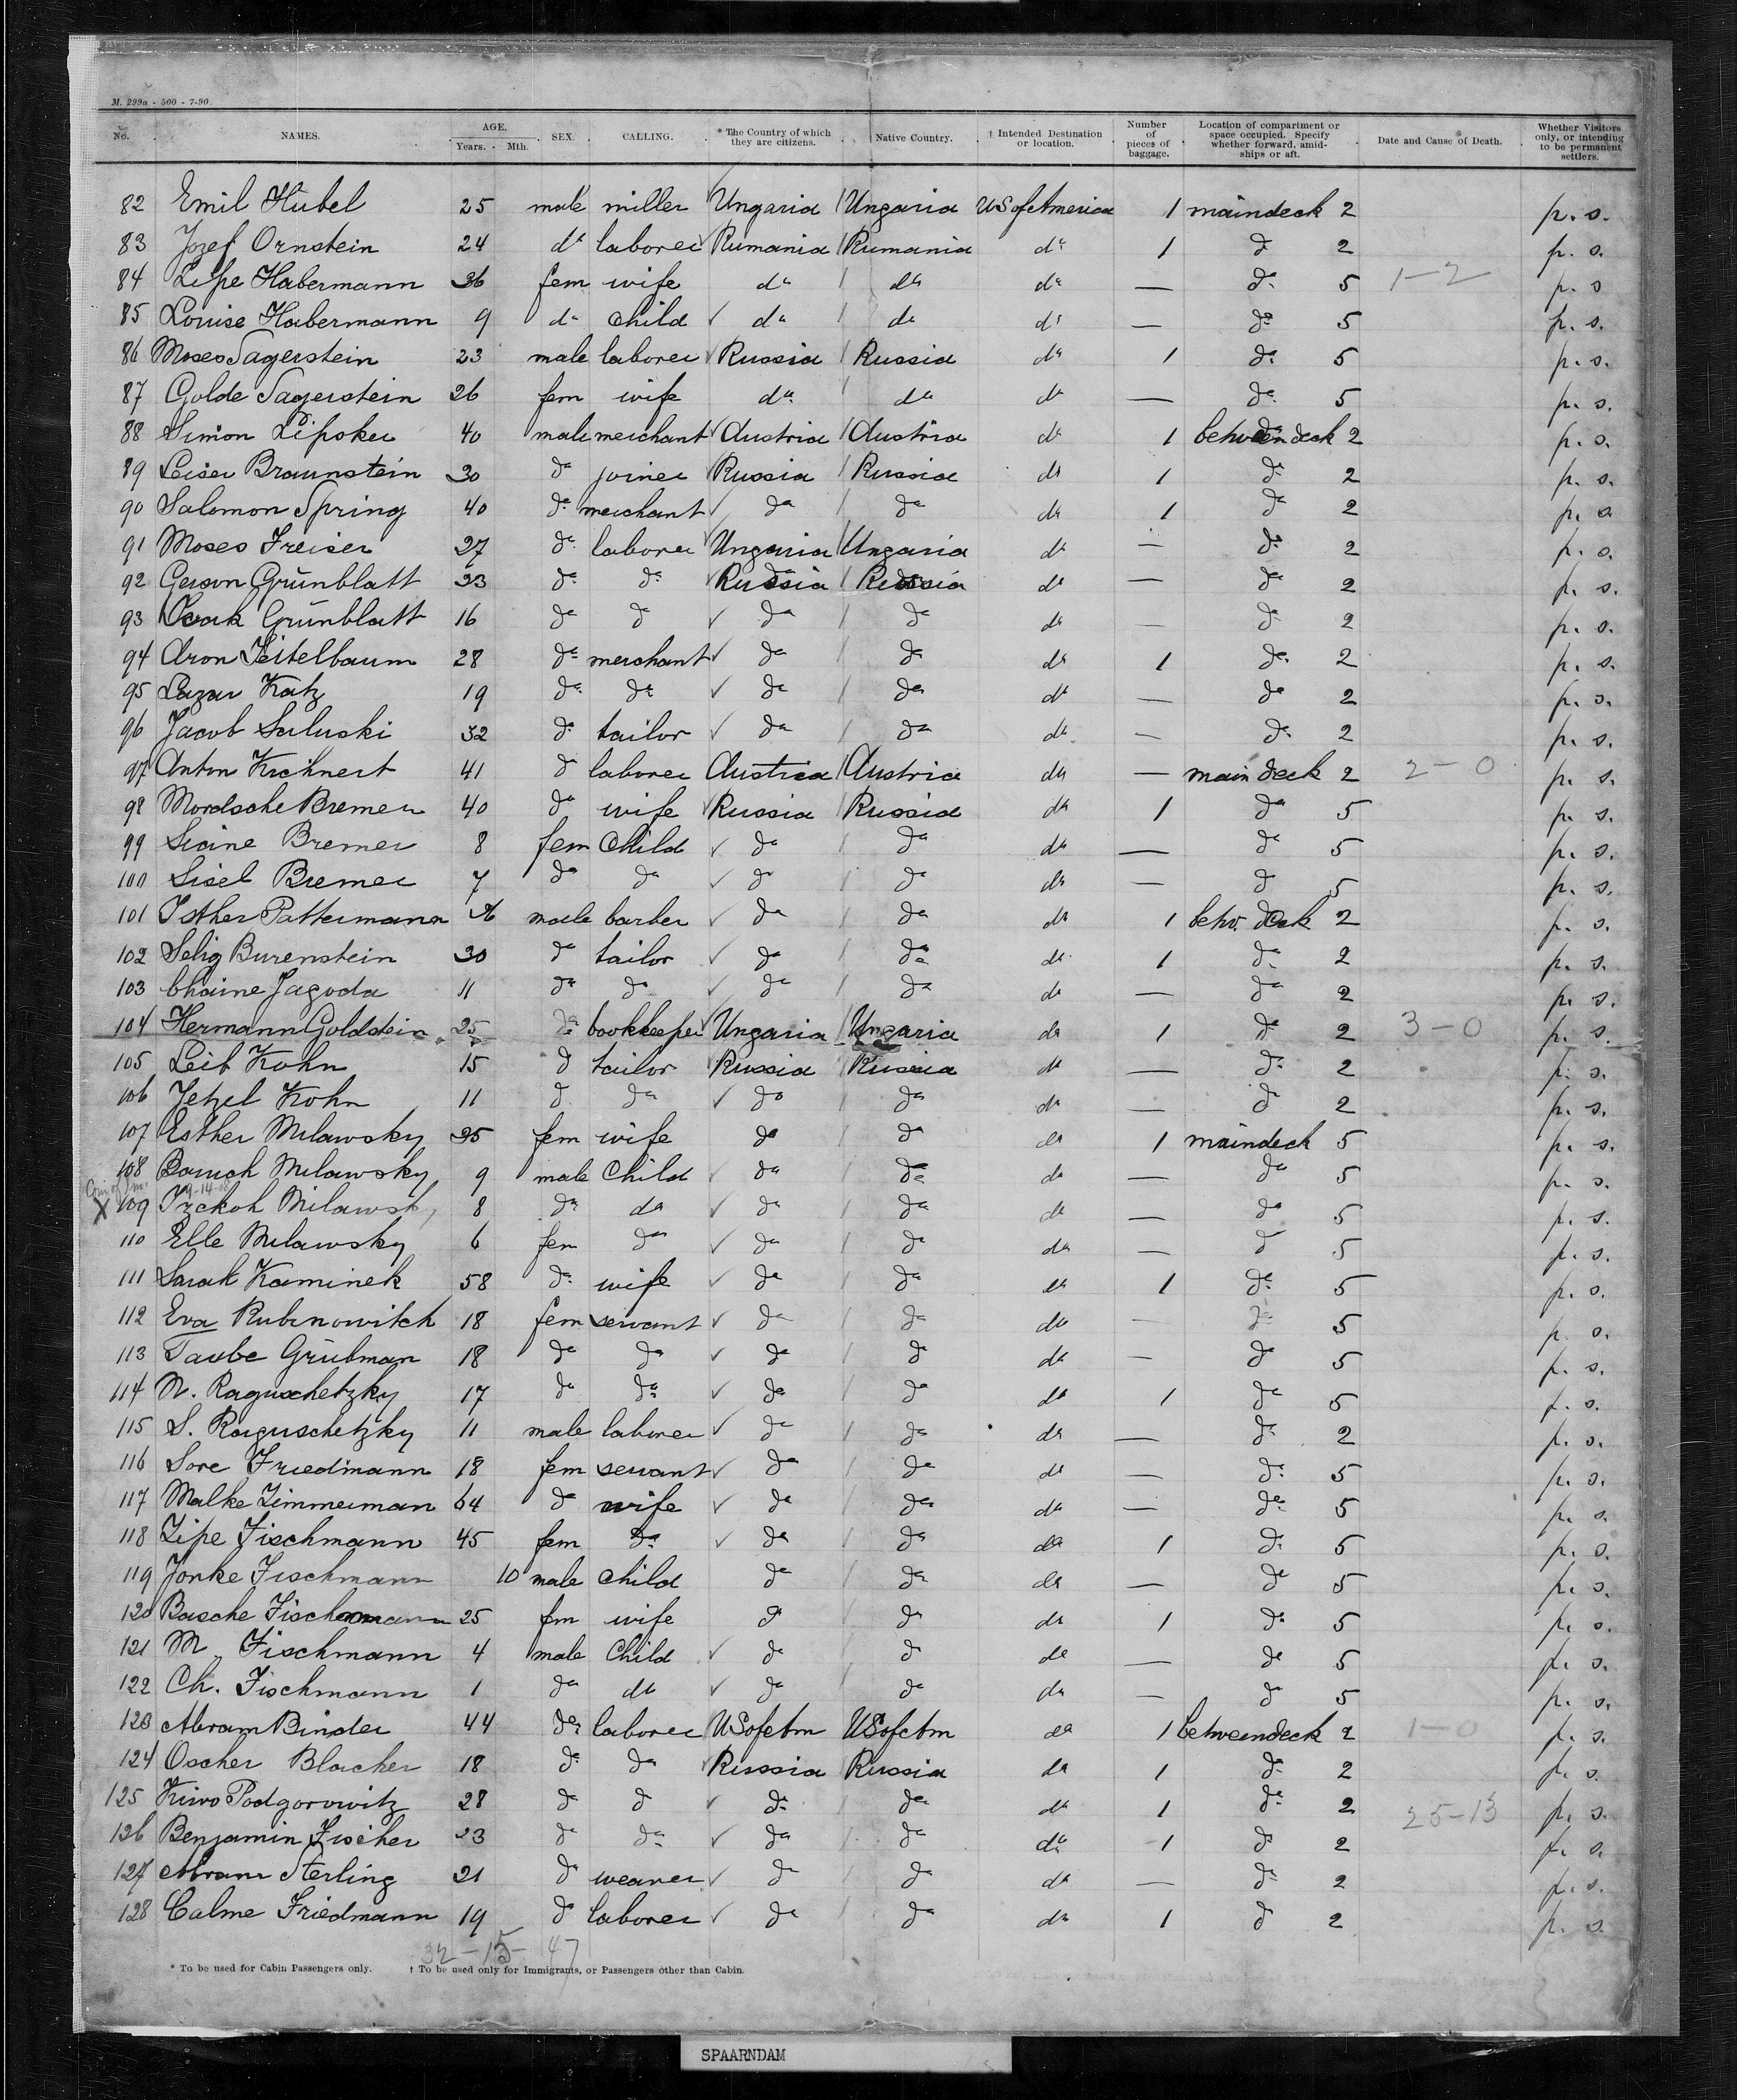 M. 299a - 500 - 7-90.
No. NAMES. AGE. Years. Mth. SEX. CALLING. * The Country of which they are citizens. Native Country. † Intended Destination or location. Number of pieces of baggage. Location of compartment or space occupied. Specify whether forward, amid-ships or aft. Date and Cause of Death. Whether Visitors only, or intending to be permanent settlers.
82 Emil Hubel 25 male miller Ungaria Ungaria US of America 1 maindeck 2 p. s.
83 Jozef Ornstein 24 do laborer Rumania Rumania do 1 do 2 p. s.
84 Lipe Habermann 36 fem wife do do do — do 5 1-2 p. s
85 Louise Habermann 9 do child do do do — do 5 p. s.
86 Moses Sagerstein 23 male laborer Russia Russia do 1 do 5 p. s.
87 Golde Sagerstein 26 fem wife do do do — do 5 p. s.
88 Simon Lipsker 40 male merchant Austria Austria do 1 between deck 2 p. s.
89 Leiser Braunstein 30 do joiner Russia Russia do 1 do 2 p. s.
90 Salomon Spring 40 do merchant do do do 1 do 2 p. s
91 Moses Freiser 27 do laborer Ungaria Ungaria do — do 2 p. s.
92 Gerson Grünblatt 33 do do Russia Russia do — do 2 p. s.
93 Isaak Grünblatt 16 do do do do do — do 2 p. s.
94 Aron Teitelbaum 28 do merchant do do do 1 do 2 p. s.
95 Lazar Katz 19 do do do do do — do 2 p. s.
96 Jacob Saluski 32 do tailor do do do — do 2 p. s.
97 Anton Kuhnert 41 do laborer Austria Austria do — main deck 2 2-0 p. s.
98 Mordsche Bremer 40 do wife Russia Russia do 1 do 5 p. s.
99 Sicine Bremer 8 fem Child do do do — do 5 p. s.
100 Sisel Bremer 7 do do do do do — do 5 p. s.
101 Isther Pattermann 26 male barber do do do 1 betw. deck 2 p. s.
102 Selig Burenstein 30 do tailor do do do 1 do 2 p. s.
103 Chaine Jagoda 11 do do do do do — do 2 p. s.
104 Hermann Goldstein 25 do bookkeeper Ungaria Ungaria do 1 do 2 3-0 p. s.
105 Leib Kohn 15 do tailor Russia Russia do — do 2 p. s.
106 Jetzel Kohn 11 do do do do do — do 2 p. s.
107 Esther Milawsky 35 fem wife do do do 1 maindeck 5 p. s.
108 Baruch Milawsky 9 male Child do do do — do 5 p. s.
X 109 Itzkoh Milawsky 8 do do do do do — do 5 p. s.
110 Elle Milawsky 6 fem do do do do — do 5 p. s.
111 Sarah Kaminek 58 do wife do do do 1 do 5 p. s.
112 Eva Rubinowitch 18 fem servant do do do — do 5 p. s.
113 Taube Grübman 18 do do do do do — do 5 p. s.
114 N. Raguschetzky 17 do do do do do 1 do 5 p. s.
115 S. Raguschetzky 11 male laborer do do do — do 2 p. s.
116 Sore Friedmann 18 fem servant do do do — do 5 p. s.
117 Malke Zimmerman 64 do wife do do do — do 5 p. s.
118 Zipe Fischmann 45 fem do do do do 1 do 5 p. s.
119 Jonke Fischmann 10 male child do do do — do 5 p. s.
120 Basche Fischmann 25 fm wife do do do 1 do 5 p. s.
121 M. Fischmann 4 male Child do do do — do 5 p. s.
122 Ch. Fischmann 1 do do do do do — do 5 p. s.
123 Abram Binder 44 do laborer US of Am US of Am do 1 betweendeck 2 1-0 p. s.
124 Oscher Blacher 18 do do Russia Russia do 1 do 2 p. s.
125 Kiwo Podgorowitz 28 do do do do do 1 do 2 25-13 p. s.
126 Benjamin Fischer 23 do do do do do 1 do 2 p. s.
127 Abram Sterling 21 do weaver do do do — do 2 p. s.
128 Calme Friedmann 19 do laborer do do do 1 do 2 p. s.
32-15- 47
* To be used for Cabin Passengers only. † To be used only for Immigrants, or Passengers other than Cabin.
SPAARNDAM